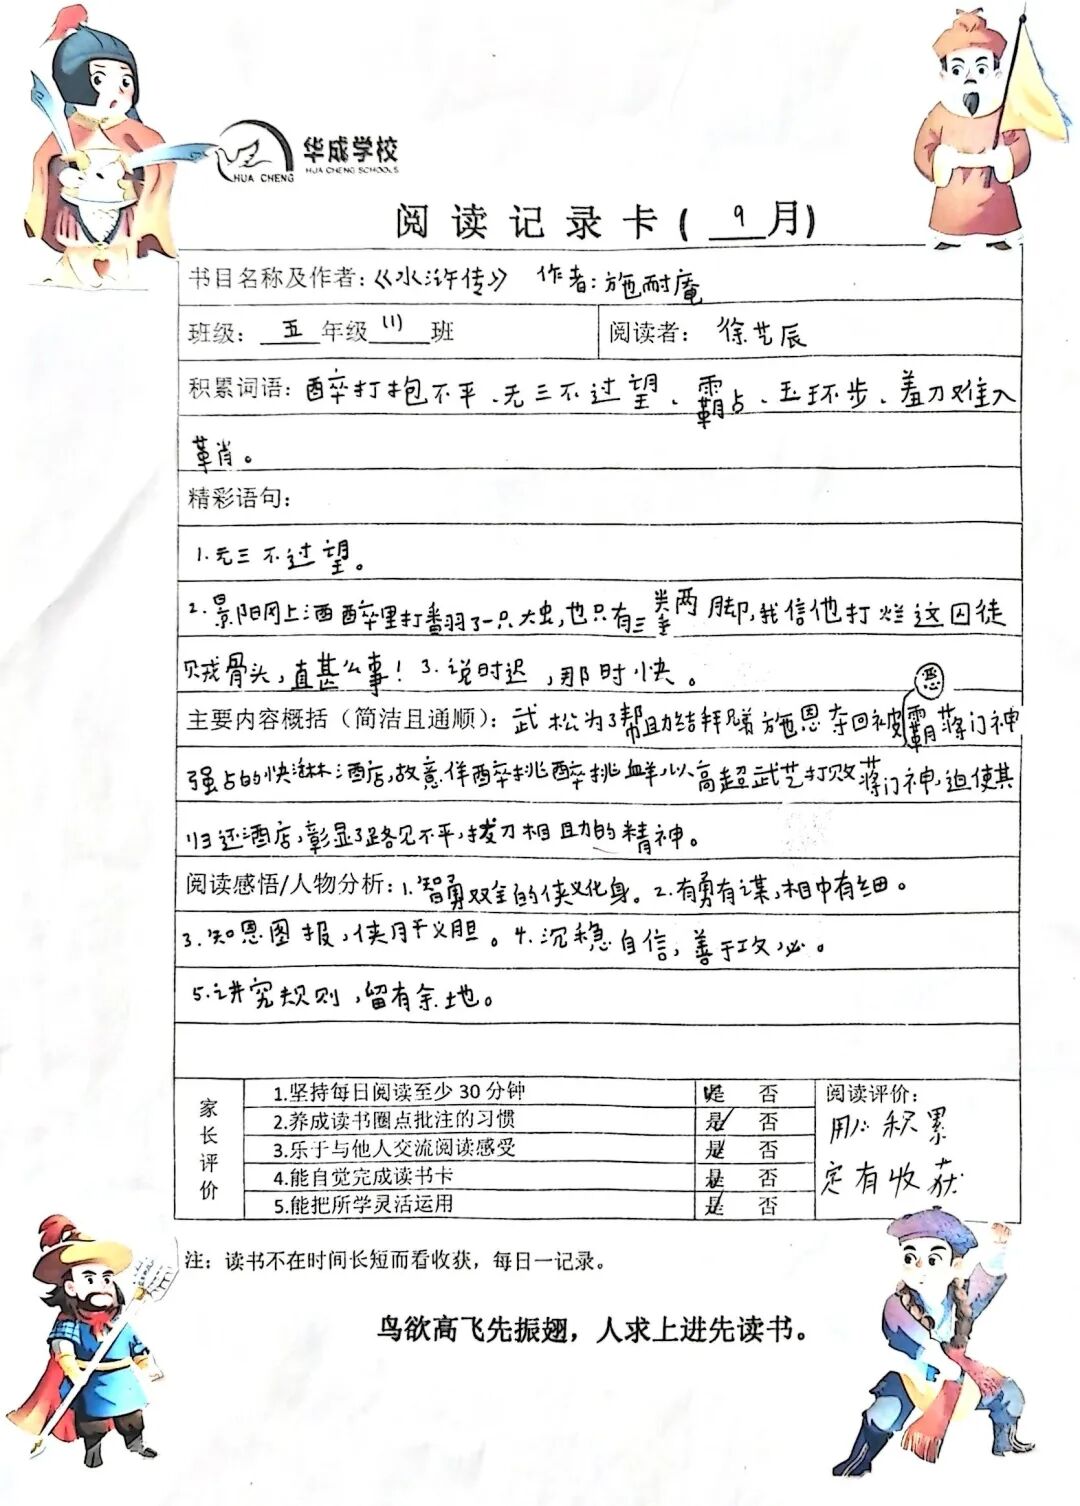 华成学校
HUA CHENG
HUA CHENG SCHOOLS
阅读记录卡(9月)
书目名称及作者:《水浒传》 作者:施耐庵
班级:五年级(1)班
阅读者:徐艺辰
积累词语:醉打抱不平、无三不过望、霸占、玉环步、羞刀难入
鞘。
精彩语句:
1.无三不过望。
2.景阳冈上酒醉里打翻了一只大虫,也只有三拳两脚,我信他打烂这囚徒
贼骨头,直甚么事!3.说时迟,那时快。
主要内容概括(简洁且通顺):武松为了帮助结拜兄弟施恩夺回被恶霸蒋门神
强占的快活林酒店,故意佯醉挑衅,以高超武艺打败蒋门神,迫使其
归还酒店,彰显了路见不平,拔刀相助的精神。
阅读感悟/人物分析:1.智勇双全的侠义化身。2.有勇有谋,粗中有细。
3.知恩图报,侠肝义胆。4.沉稳自信,善于攻心。
5.讲究规则,留有余地。
家长评价
1.坚持每日阅读至少30分钟 是 否
2.养成读书圈点批注的习惯 是 否
3.乐于与他人交流阅读感受 是 否
4.能自觉完成读书卡 是 否
5.能把所学灵活运用 是 否
阅读评价:
用心积累
定有收获
注:读书不在时间长短而看收获,每日一记录。
鸟欲高飞先振翅,人求上进先读书。